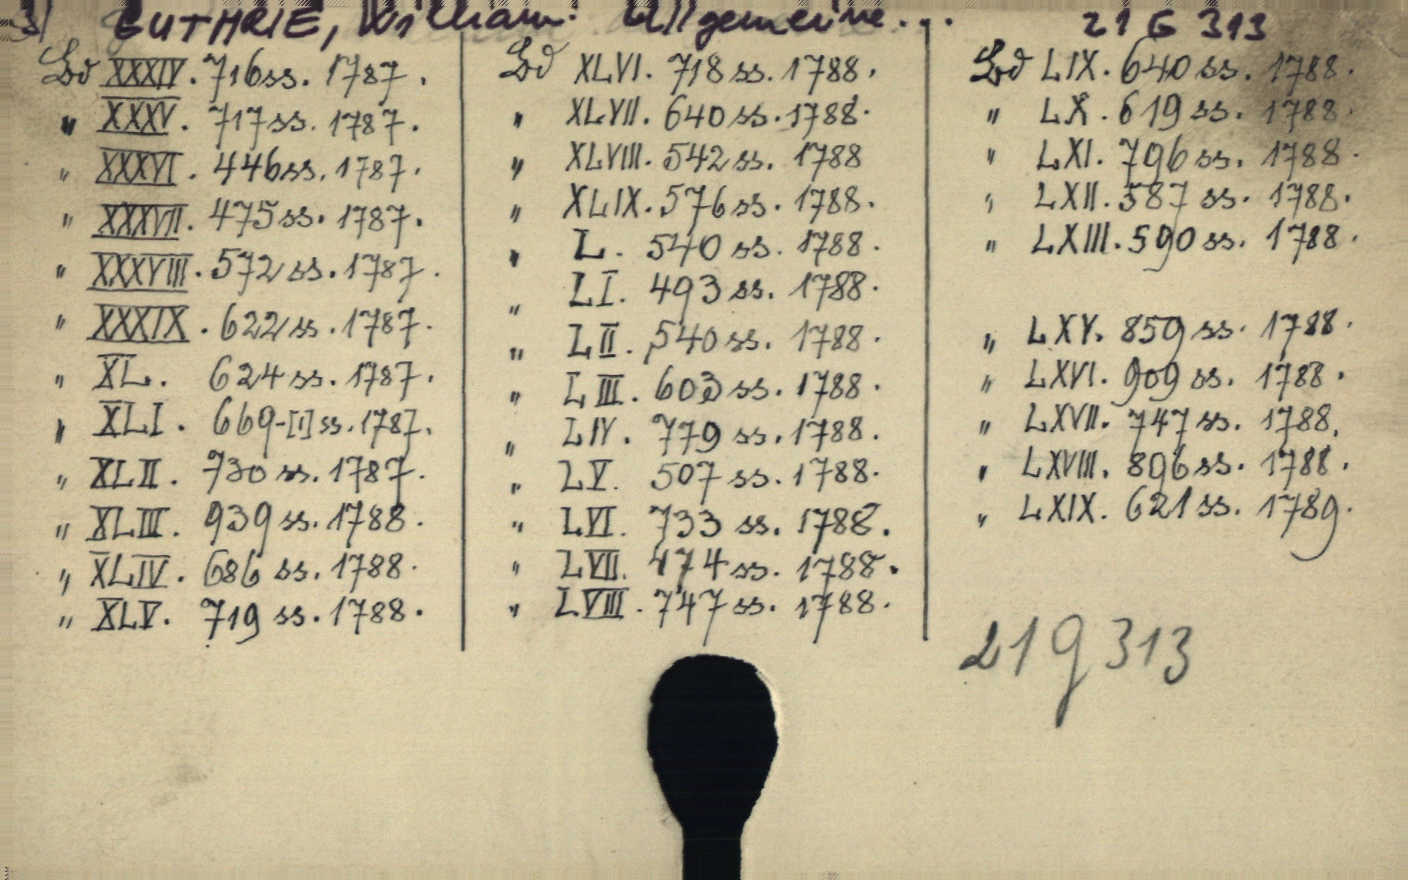 3) GUTHRIE, William: Allgemeine... 21 G 313
Bd XXXIV. 716 ss. 1787.
" XXXV. 717 ss. 1787.
" XXXVI. 446 ss. 1787.
" XXXVII. 475 ss. 1787.
" XXXVIII. 572 ss. 1787.
" XXXIX. 622 ss. 1787.
" XL. 624 ss. 1787.
" XLI. 669-[1] ss. 1787.
" XLII. 730 ss. 1787.
" XLIII. 939 ss. 1788.
" XLIV. 686 ss. 1788.
" XLV. 719 ss. 1788.
Bd XLVI. 718 ss. 1788.
" XLVII. 640 ss. 1788.
" XLVIII. 542 ss. 1788
" XLIX. 576 ss. 1788.
" L. 540 ss. 1788.
" LI. 493 ss. 1788.
" LII. 540 ss. 1788.
" LIII. 603 ss. 1788.
" LIV. 779 ss. 1788.
" LV. 507 ss. 1788.
" LVI. 733 ss. 1788.
" LVII. 474 ss. 1788.
" LVIII. 747 ss. 1788.
Bd LIX. 640 ss. 1788.
" LX. 619 ss. 1788.
" LXI. 796 ss. 1788.
" LXII. 587 ss. 1788.
" LXIII. 590 ss. 1788.
" LXV. 859 ss. 1788.
" LXVI. 909 ss. 1788.
" LXVII. 747 ss. 1788.
" LXVIII. 896 ss. 1788.
" LXIX. 621 ss. 1789.
21 g 313